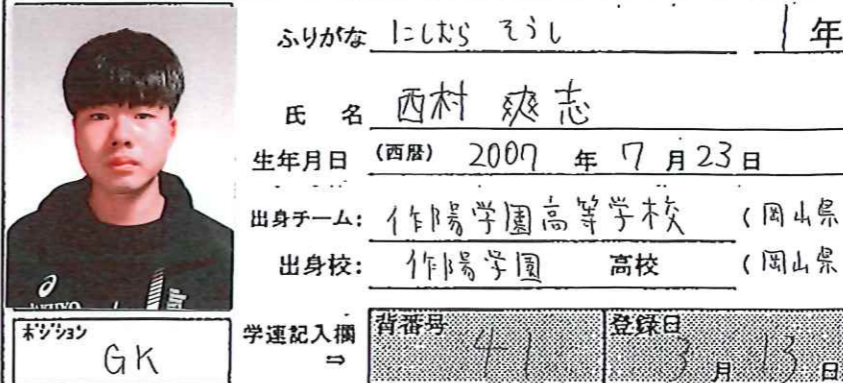 ふりがな にしむら そうし 1年
氏 名 西村 爽志
生年月日 (西暦) 2007 年 7 月 23 日
出身チーム: 作陽学園高等学校 (岡山県
出身校: 作陽学園 高校 (岡山県
ポジション GK
学連記入欄 ⇒ 背番号 41 登録日 3 月 13 日